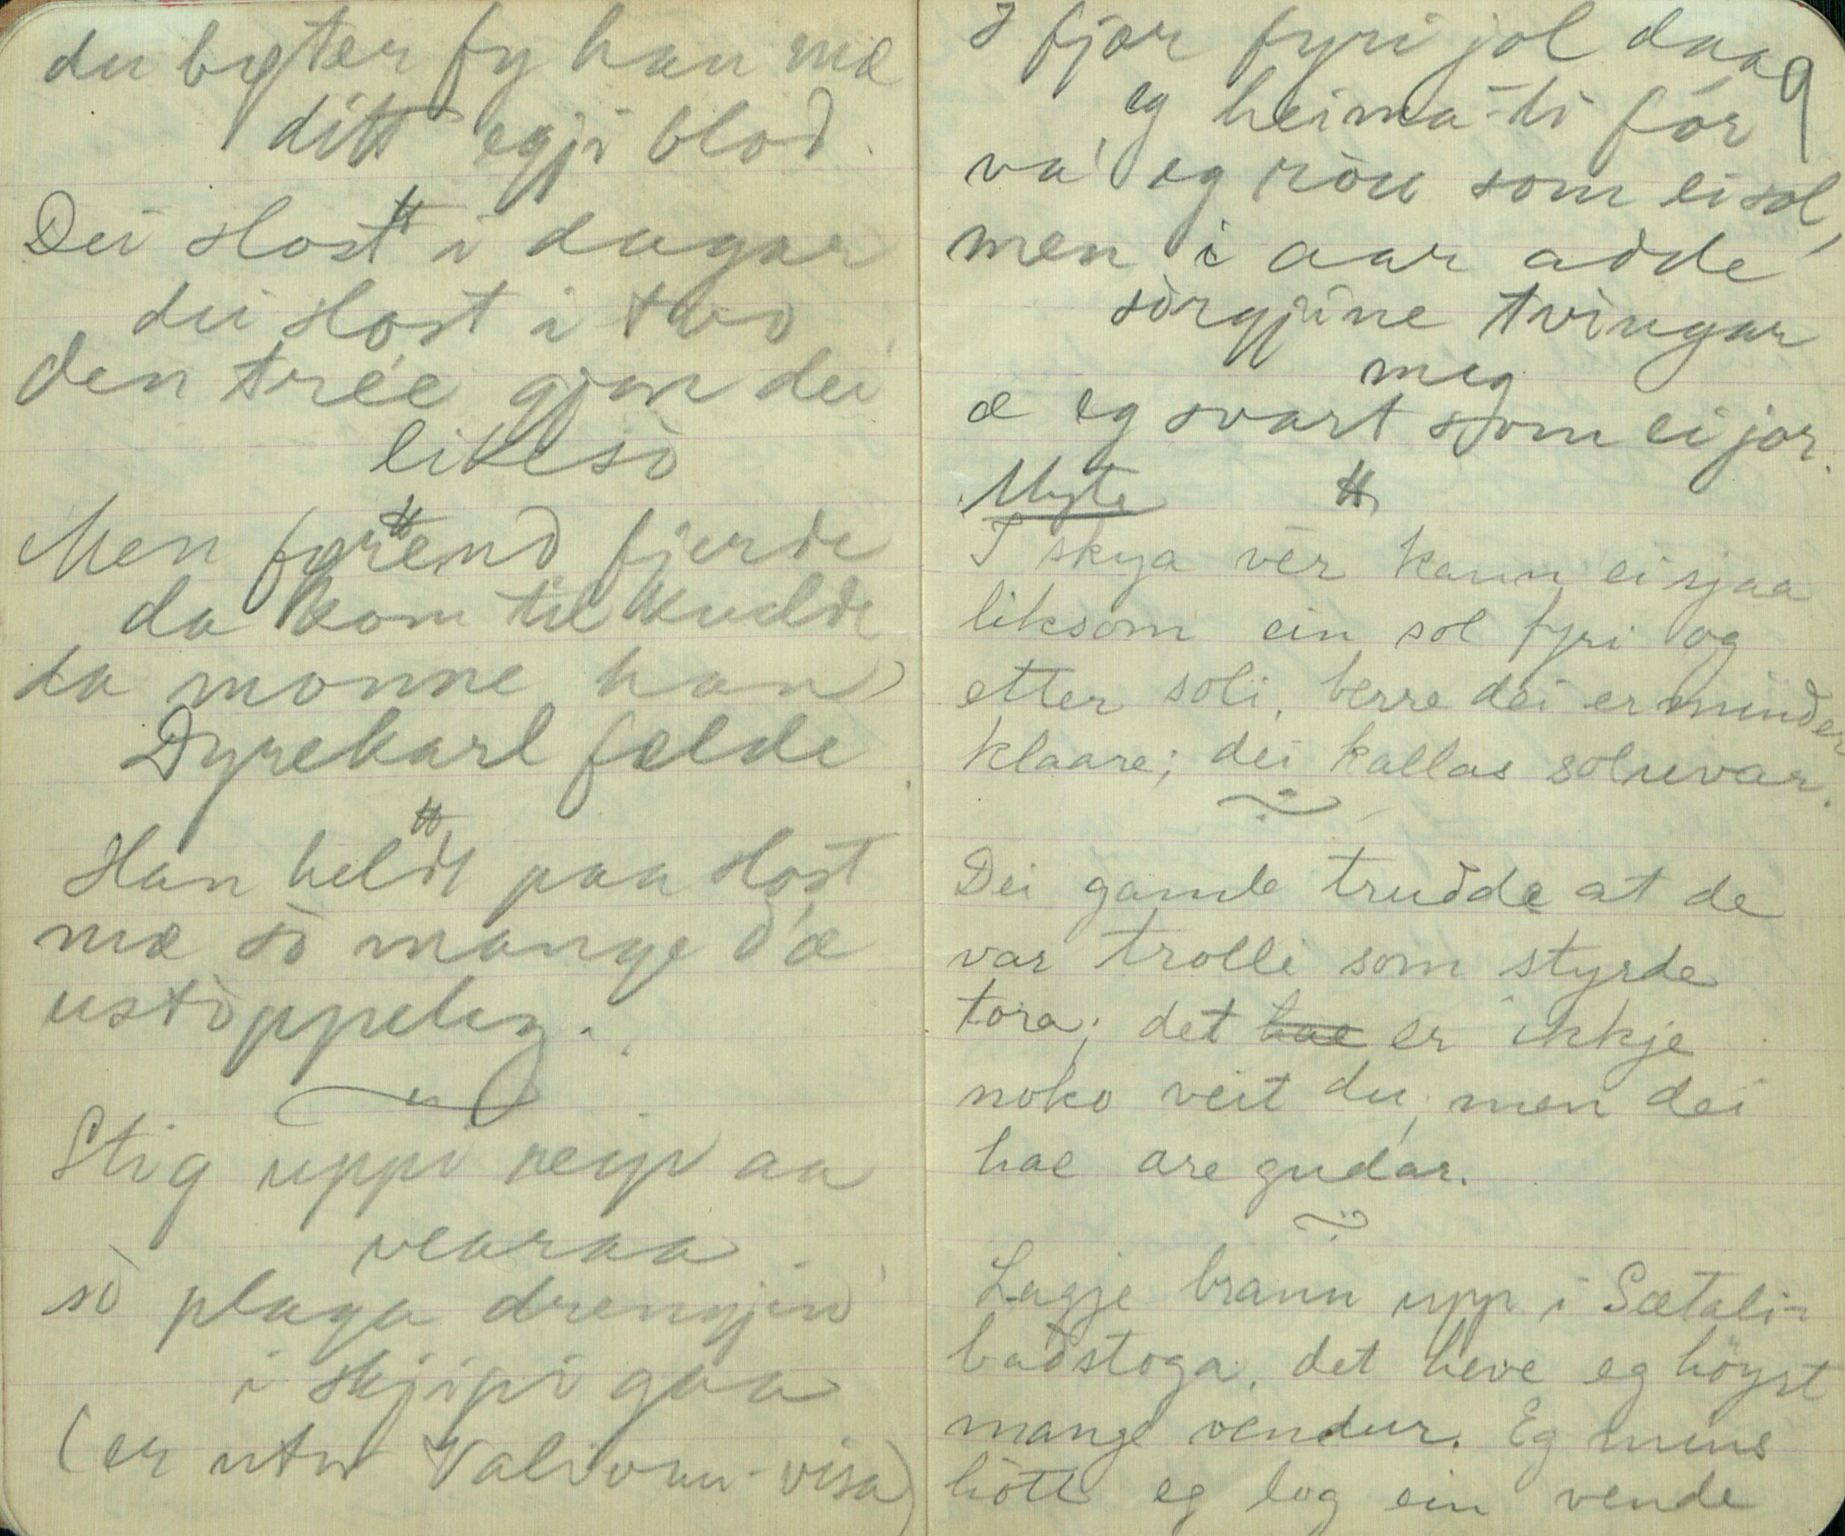 du bøter fy han mæ
ditt egji blod.
Dei slost i dagar
dei slost i two
den trée gjor dei
likeso
Men fyrend fjerde
da kom til kvelde
da monne han
Dyrekarl fælde
Han heldt paa slost
mæ sò mange d'æ
ustòppeleg.
Stig uppi reip aa
vearaa
sò plaga drengjin
i skjipi gaa
(er utu Valivan-visa)
9
I fjor fyri jol daa
eg heima-ti fór
va' eg röu som ei sol,
men i aar adde
sòrgjine tvingar
meg
æ eg svart som ei jor.
Myte
I skya vêr kann ei sjaa
liksom ein sol fyri og
etter soli, berre dei er minder
klaare; dei kallas soluvar.
Dei gamle trudde at de
var trolli som styrde
tora; det hae er ikkje
noko veit du, men dei
hae are gudar.
Lagje brann upp i Sætali-
badstoga, det heve eg höyrt
mange vendur. Eg mins
hött eg log ein vende